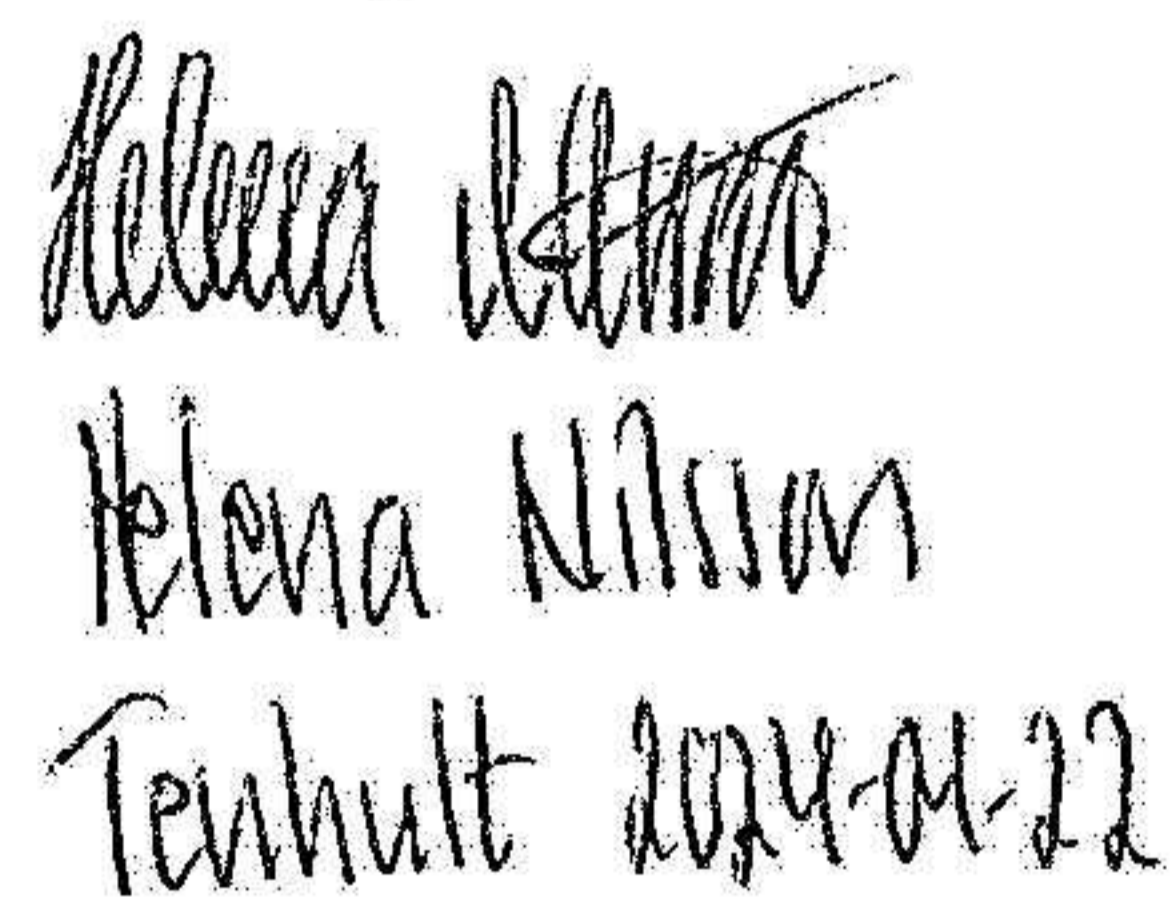 Helena
Helena Nilsson
Tenhult 2024-01-22